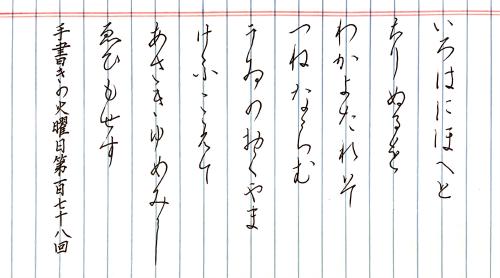 いろはにほへと
ちりぬるを
わかよたれそ
つねならむ
うゐのおくやま
けふこえて
あさきゆめみし
ゑひもせす
手書きの火曜日第百七十八回